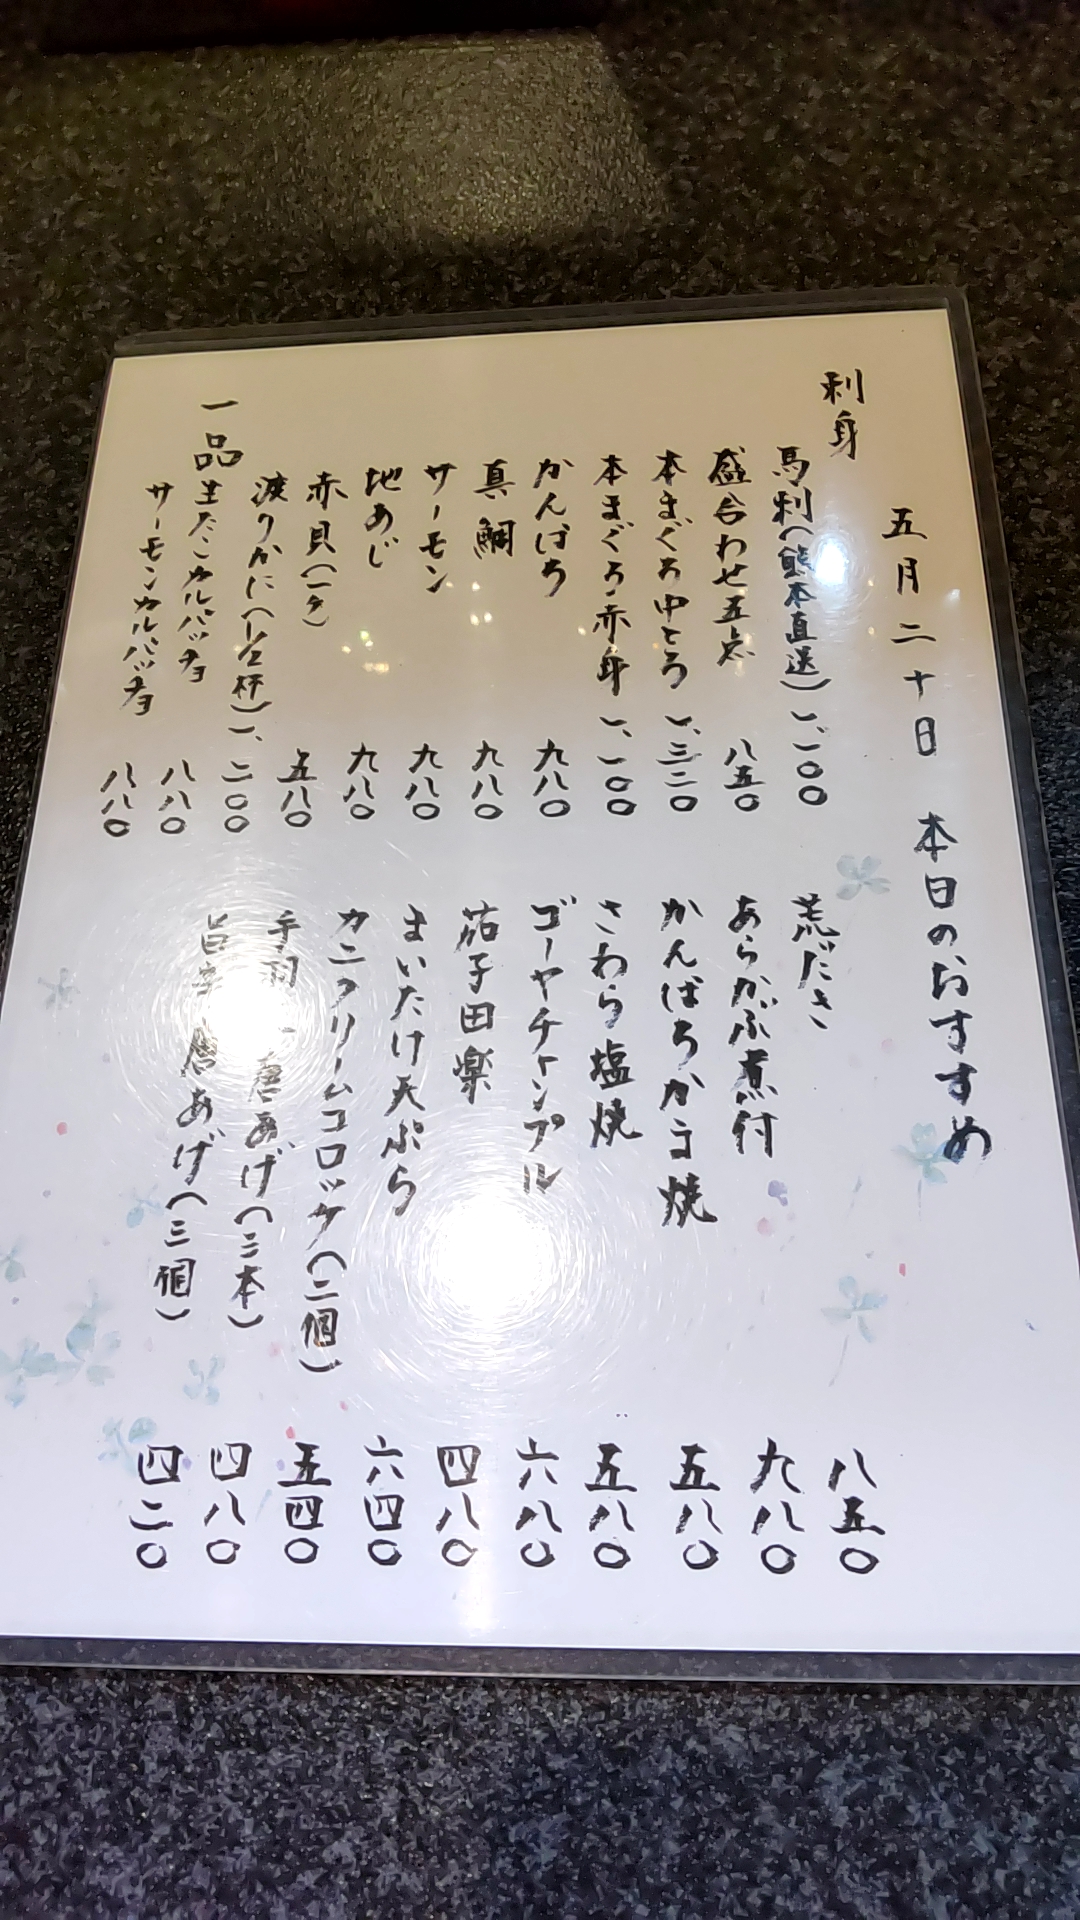 五月二十日 本日のおすすめ
刺身
馬刺(熊本直送) 一、一〇〇
盛合わせ五点 八五〇
本まぐろ中とろ 一、三二〇
本まぐろ赤身 一、一〇〇
かんぱち 九八〇
真鯛 九八〇
サーモン 九八〇
地あじ 九八〇
赤貝(一ケ) 五八〇
渡りかに(1/2杯) 一、二〇〇
一品
生たこカルパッチョ 八八〇
サーモンカルパッチョ 八八〇
荒だき 八五〇
あらかぶ煮付 九八〇
かんぱちかま焼 五八〇
さわら塩焼 五八〇
ゴーヤチャンプル 六八〇
茄子田楽 四八〇
まいたけ天ぷら 六四〇
カニクリームコロッケ(二個) 五四〇
手羽 唐あげ(三本) 四八〇
旨辛唐あげ(三個) 四二〇